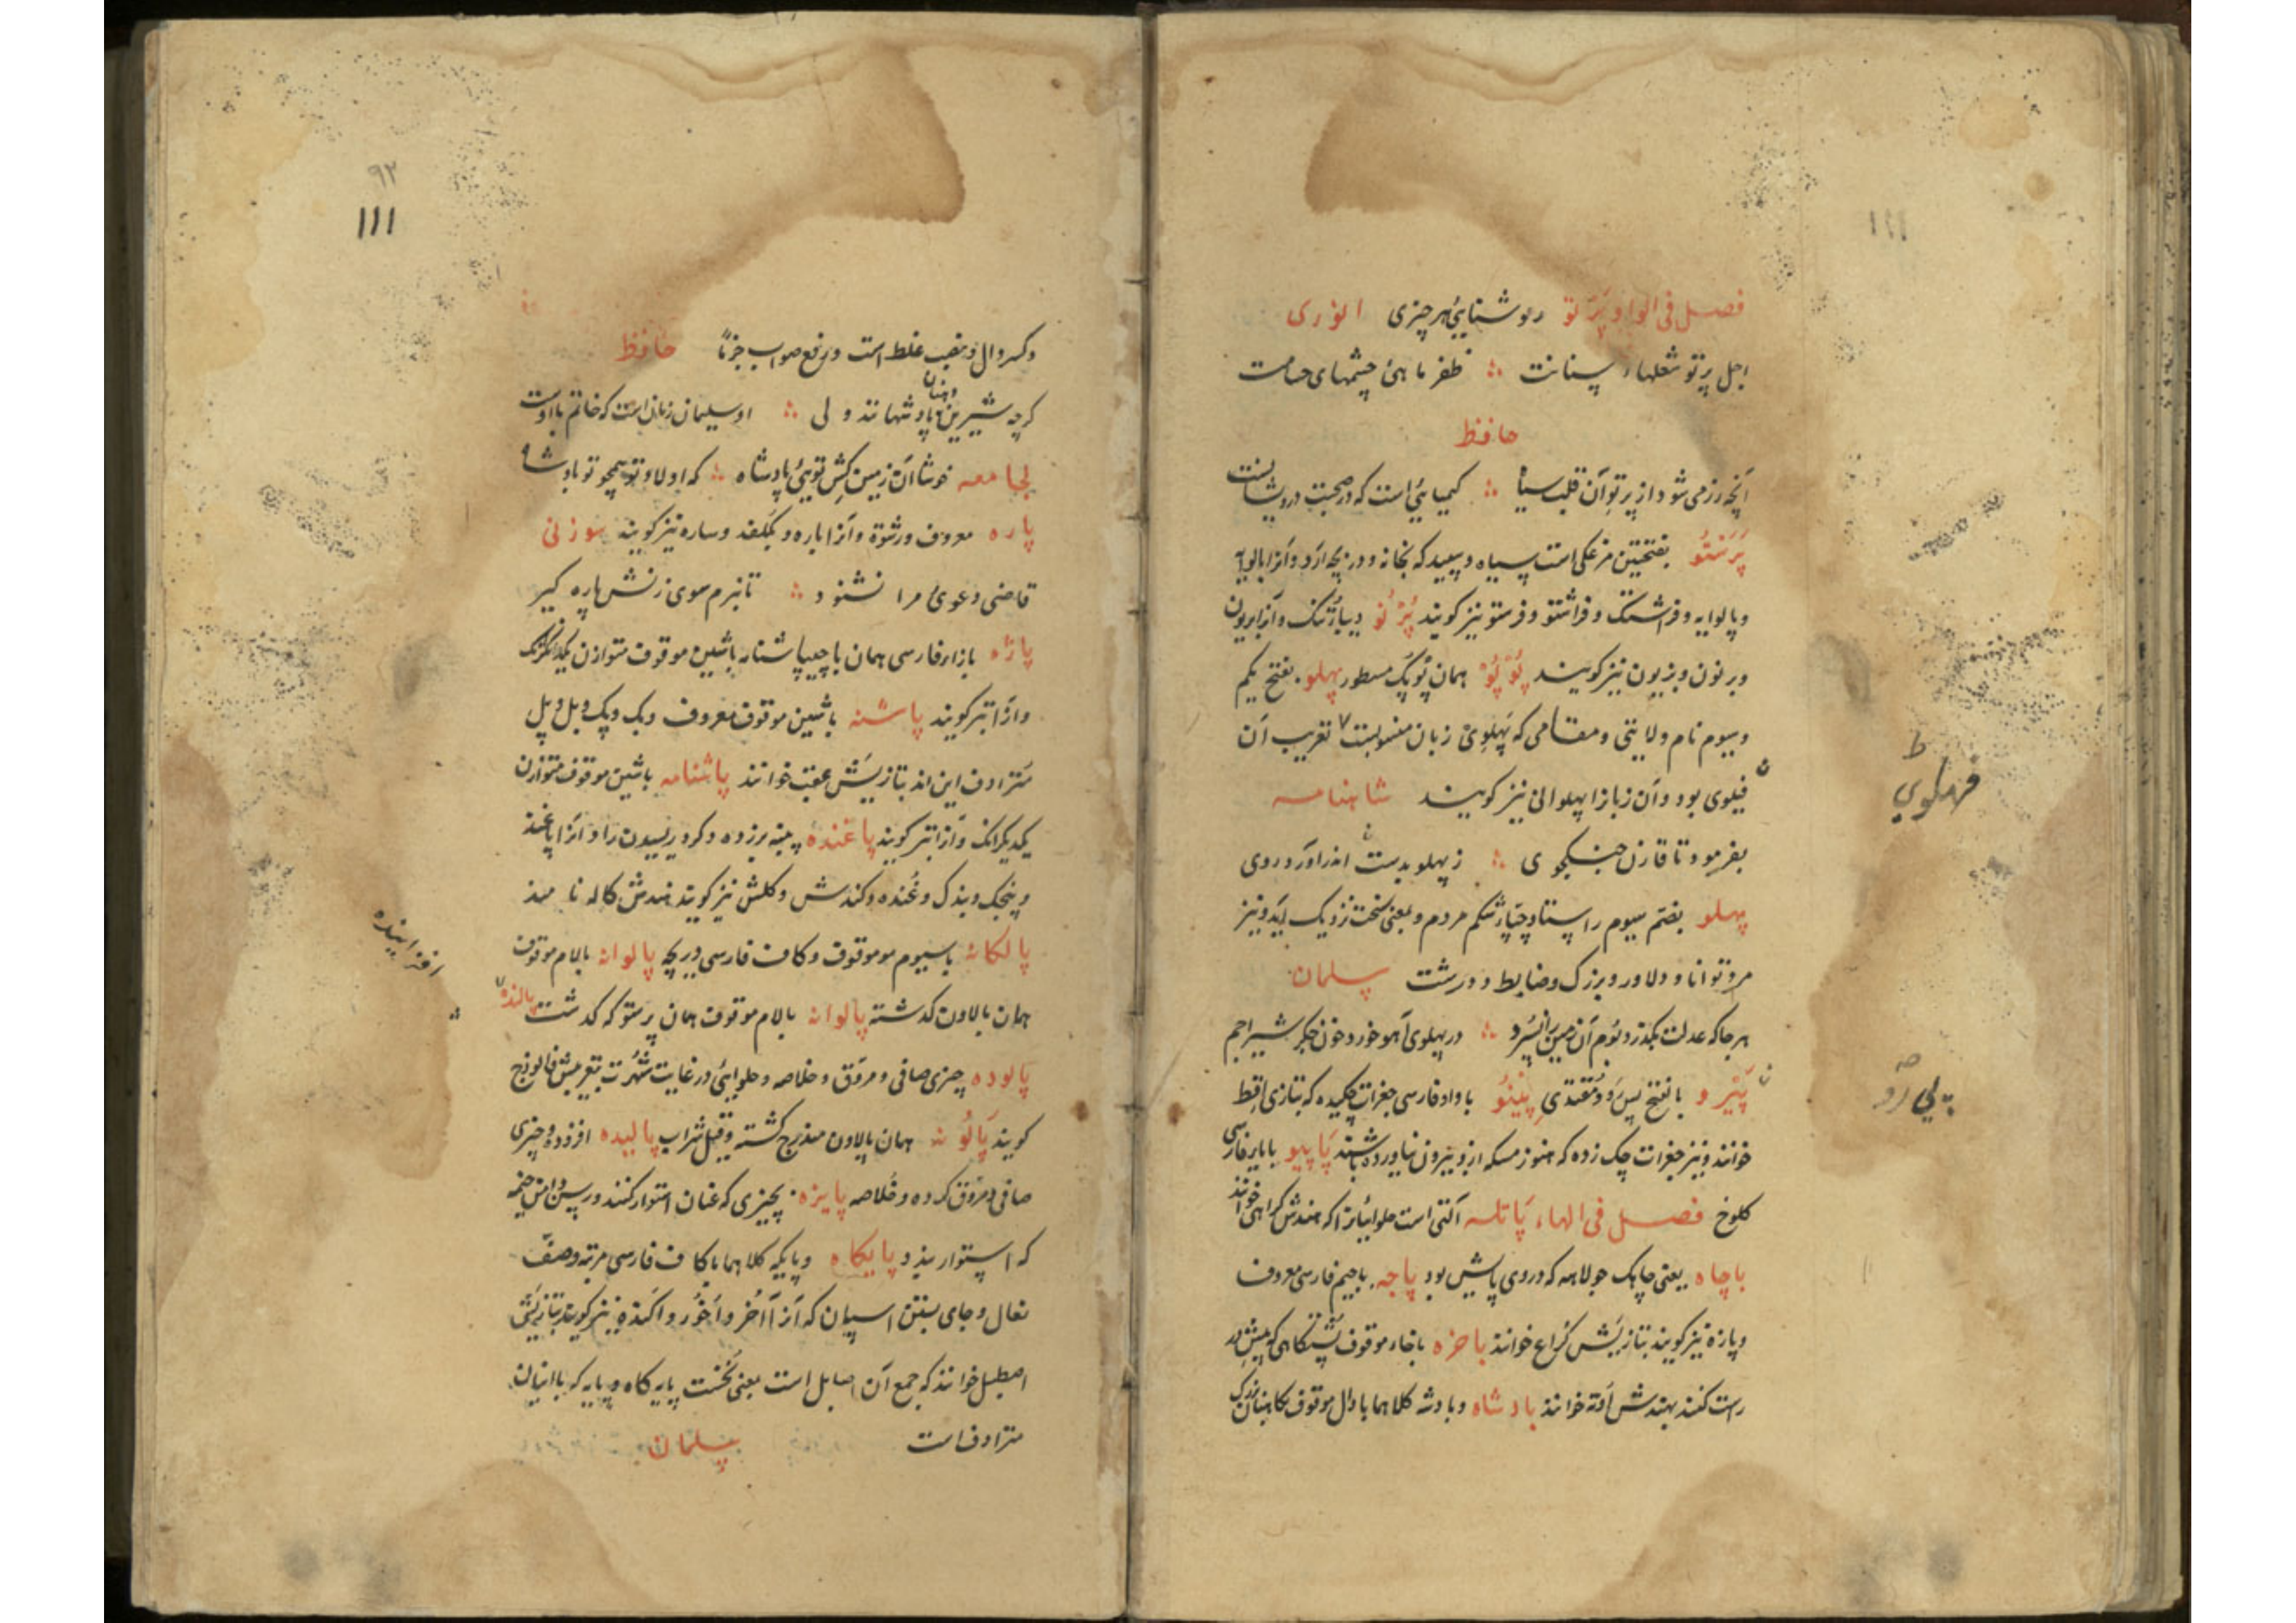 فصل فی الواو پَرَتو روشنایئ هر چیزی انوری
اجل پرتو شعلهاء سنانت ؞ ظفر ماهئ چشمهای حسامت
حافظ
آنچه زر می شود از پرتوِ آن قلب سیاه ؞ کیمیایئ است که در صحبت درویشانست
پَرَستُو بفتحتین مرغکی است سیاه و سپید که بخانه و دریچه آرد و آنرا بالوایه
و پالوایه و فراشتک و فراشتو و فرستو نیز گویند پُرْنُو دیبا تنک و آنرا بربون
و برنون و بزیون نیز گویند پُوْپُوْ همان پُوپَک مسطور پهلو بفتح یکم
و سیوم نام ولایتی و مقامی که پَهلوی زبان منسوبست تعریب آن
فیلوی بود و آن زبانرا پهلوانی نیز گویند شاهنامه
بفرمود تا قارن جنگجوی ؞ ز پهلو بدشت اندر آورد روی
پهلو بضم سیوم راستا و چپا از شکم مردم و بمعنی سخت نزدیک آید و نیز
مرد توانا و دلاور و بزرگ و ضابط و درشت سلمان
هرجا که عدلت بگذرد بوم آن زمین را نسپرد ؞ در پهلوی آهو خورد خون جگر شیر اجم
پَیْرو بالفتح پس رو و مقتدی پِینُو با واو فارسی جغرات چکیده که بتازی اقط
خوانند و نیز جغرات چک زده که هنوز مسکه ازو بیرون نیاورده باشند پَاپیو با یاء فارسی
کلوخ فصل فی الهاء پَاتله آلتی است حلوائیانرا که هندش کراهی خوانند
باچاه یعنی چاهک جولاهه که در وی پایش بود پاچه با جیم فارسی معروف
و پازه نیز گویند بتازیش کراع خوانند باخره باخاء موقوف پشتگاهی که پیش در
راست کنند بهندش اوته خوانند بادشاه و بادشه کلاهما با دال موقوف نگاهبان بزرگ
فهلوی
پی رو
۹۲
۱۱۱
و کسر دال و بنصب غلط است و برفع صواب جزمًا حافظ
گرچه شیرین دهنان پادشهانند ولی ؞ او سلیمان زمان است که خاتم با اوست
لجامعه خوشا آن زمین کش تویئ پادشاه ؞ که او لاد تو همچو تو بادشاه
پاره معروف و رشوة و آنرا باره و بکفد و ساره نیز گویند سوزنی
قاضی دعویٔ مرا نشنود ؞ تا نبرم سوی زنش پاره کیر
پاژه بازاء فارسی همان پاچه پاشنامه باشین موقوف متوازن یکدیگرانک
و آنرا تبر گویند پاشنه باشین موقوف معروف و بک و پک و بل و پل
مترادف این اند بتازیش عقب خوانند پاشنامه باشین موقوف متوازن
یکدیگرانک و آنرا تبر گویند پاغنده پنبه برزده و گرد ریسیدن را و آنرا پاغند
و پنجک و بندک و غنده و کندش و کلش نیز گویند هندش کاله نامند
پالکانه با سیوم موقوف و کاف فارسی دریچه پالوانه بالام موقوف
همان بالاون گذشته پالوانه بالام موقوف همان پرستو که گذشت پالنده
پالوده چیزی صافی و مروق و خلاصه و حلوایئ در غایت شهرت بتعریبش فالوذج
گویند پَالُونه همان پالاون مندرج گشته و قیل شراب پالیده افزوده و چیزی
صافی و مروق کرده و خلاصه پایزه چیزی که عنان استوار کنند و ریسن دامن خیمه
که استوار بندد پایگاه و پایکه کلاهما با کاف فارسی مرتبه و صفّ
نعال و جای بستن اسپان که آنرا آخُر و آخور و آکنده نیز گویند بتازیش
اصطبل خوانند که جمع آن اصابل است بمعنی نخست پایه گاه و پایه که با ایشان
مترادف است سلمان
افزاینده